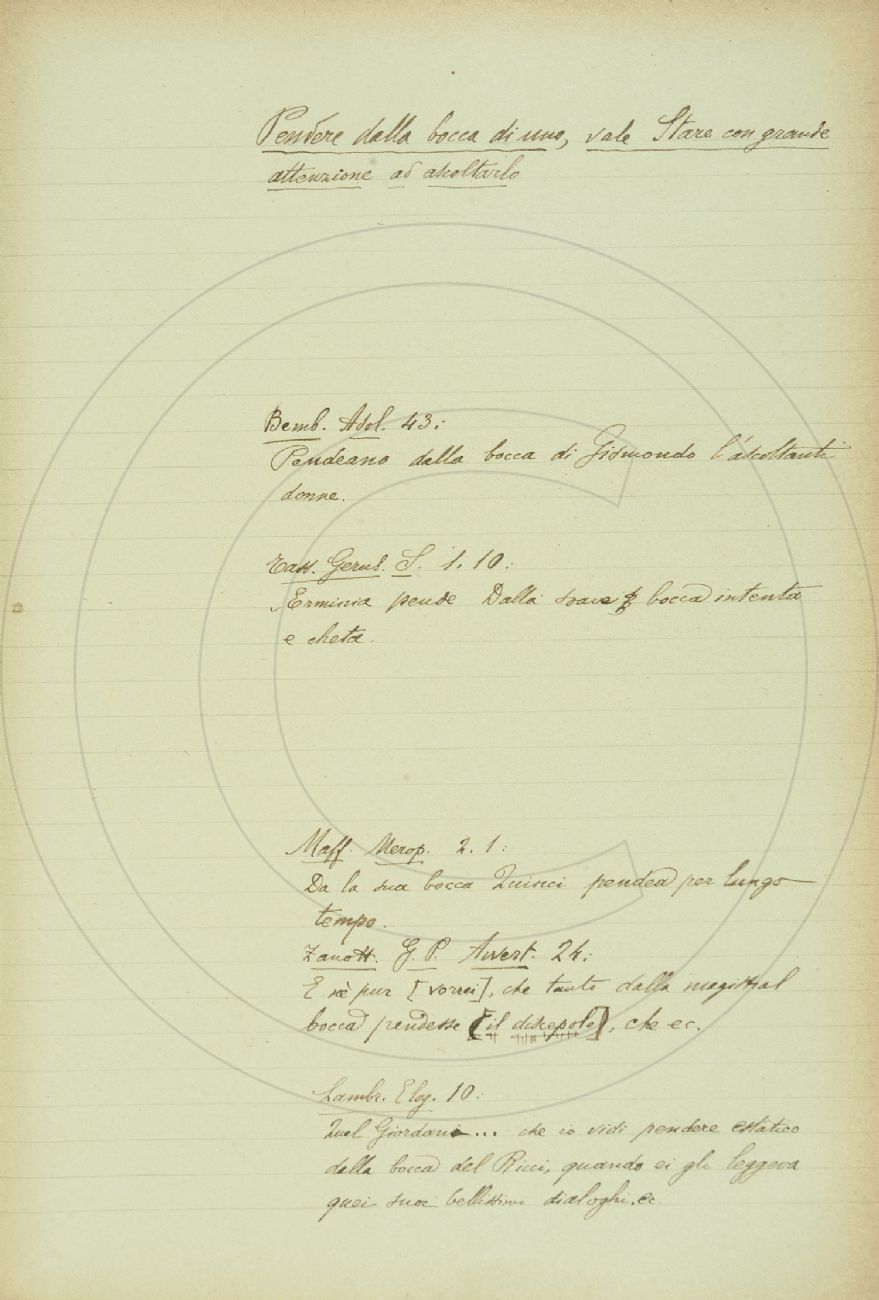 Pendere dalla bocca di uno, vale Stare con grande
attenzione ad ascoltarlo
Bemb. Asol. 43:
Pendeano dalla bocca di Gismondo l'ascoltanti
donne.
Tass. Gerus. S. 1. 10:
Erminia pende Dalla soave bocca intenta
e cheta.
Maff. Merop. 2. 1:
Da la sua bocca Quinci pendea per lungo
tempo.
Zanott. G. P. Avvert. 24:
E nè pur [vorrei], che tanto dalla magistral
bocca pendesse [il discepolo], che ec.
Lambr. Elog. 10:
Quel Giordani... che io vidi pendere estatico
dalla bocca del Ricci, quando ei gli leggeva
quei suoi bellissimi dialoghi. ec.